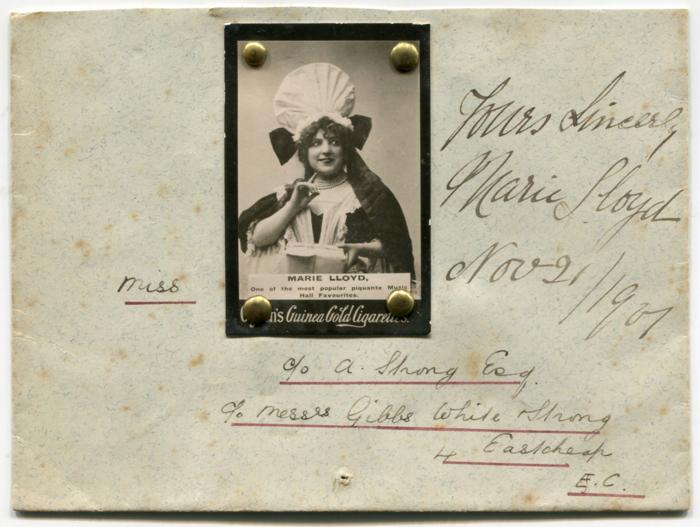 Yours Sincerely
Marie Lloyd
Nov 21/1901
Miss
MARIE LLOYD,
One of the most popular piquante Music
Hall Favourites.
Guinea Gold Cigarettes.
c/o A. Strong Esq.
c/o Messrs Gibbs White Strong
4 Eastcheap
E.C.